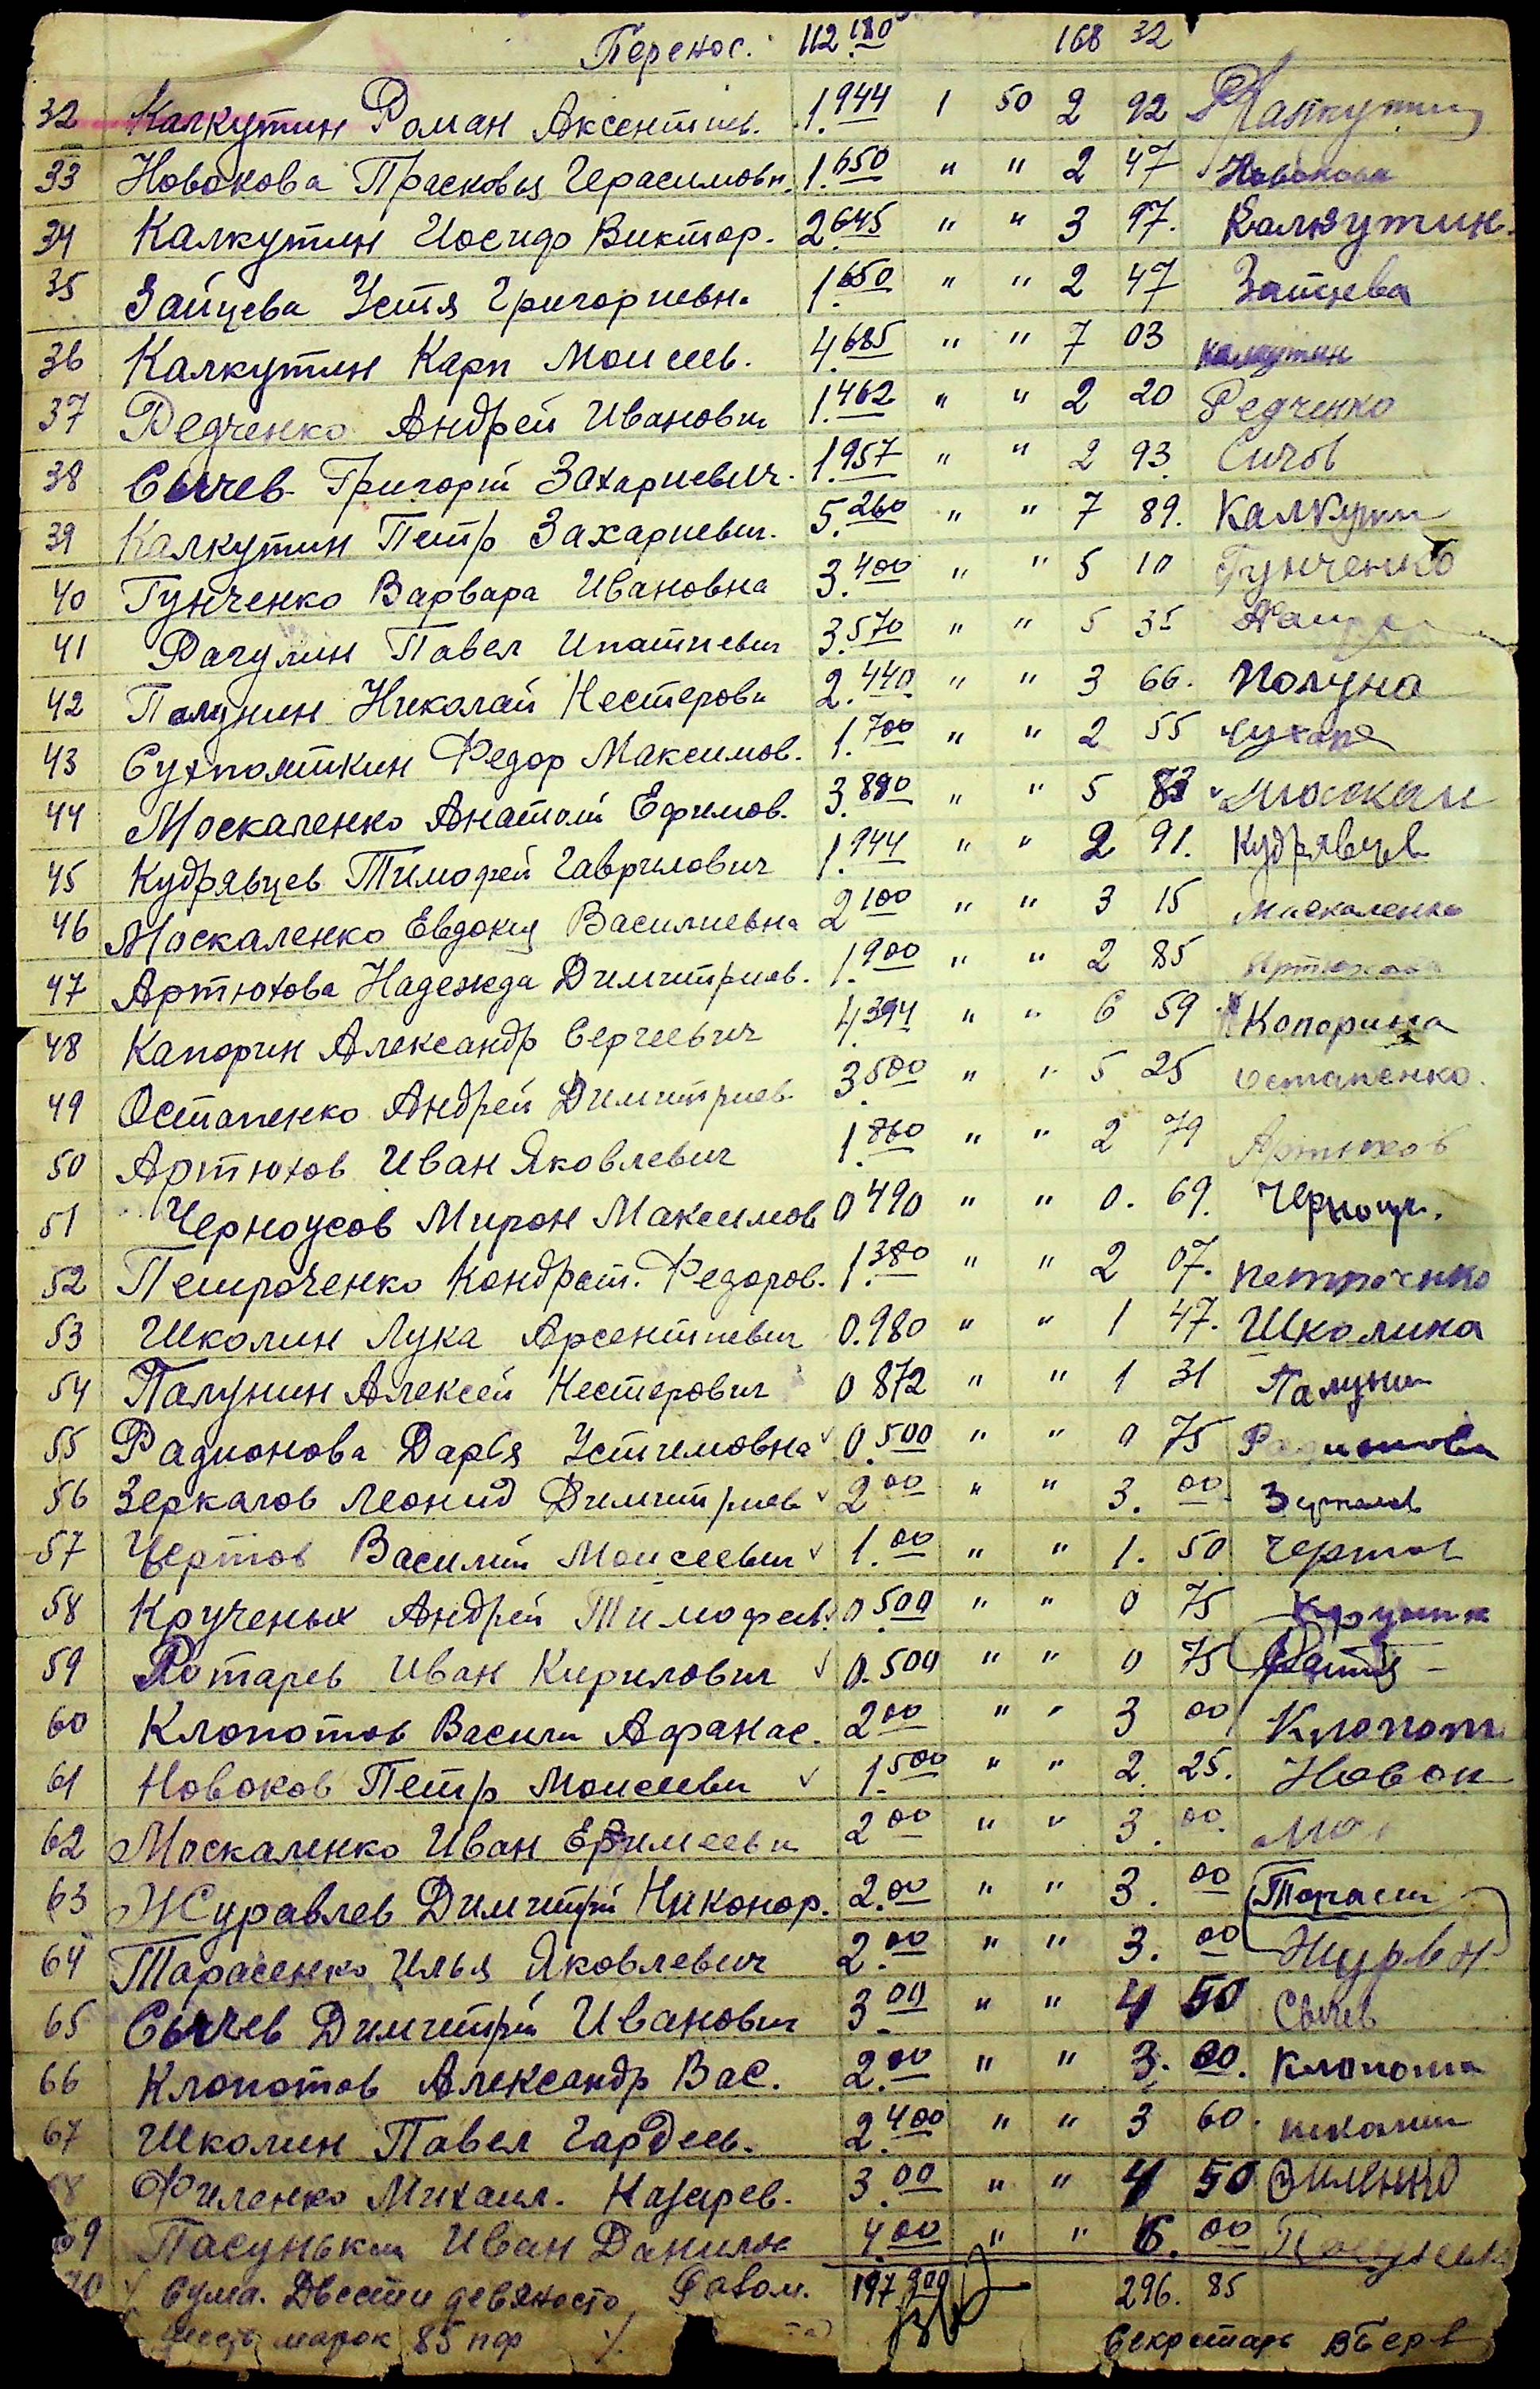 Перенос. 112.180 168 32
32 Калкутин Роман Аксентиев. 1.944 1 50 2 92 Калкутин
33 Новокова Прасковья Герасимовн. 1.650 " " 2 47 Новокова
34 Калкутин Иосиф Виктор. 2.645 " " 3 97. Калкутин.
35 Зайцева Устя Григориевн. 1.650 " " 2 47 Заицева
36 Калкутин Карп Моисеев. 4.685 " " 7 03 Калкутин
37 Редченко Андрей Иванович 1.462 " " 2 20 Редченко
38 Сычев Григорий Захариевич. 1.957 " " 2 93 Сичов
39 Калкутин Петр Захариевич. 5.260 " " 7 89. Калкутин
40 Гунченко Варвара Ивановна 3.400 " " 5 10 Гунченко
41 Рагулин Павел Ипатиевич 3.570 " " 5 35
42 Палунин Николай Нестерович 2.440 " " 3 66. Полуно
43 Сухпояткин Федор Максимов. 1.700 " " 2 55
44 Москаленко Анатолий Ефимов. 3.890 " " 5 83 Москал
45 Кудрявцев Тимофей Гаврилович 1.944 " " 2 91. Кудрявцев
46 Москаленко Евдокия Василиевна 2 100 " " 3 15 Москаленко
47 Артюхова Надежда Димитриев. 1.900 " " 2 85 Артюхова
48 Капорин Александр Сергеевич 4.394 " " 6 59 Копорина
49 Остапенко Андрей Димитриев. 3.500 " " 5 25 Остапенко.
50 Артюхов Иван Яковлевич 1.860 " " 2 79 Артюхов
51 Черноусов Мирон Максимов 0 490 " " 0. 69. Черноус.
52 Петроченко Кондрат. Федоров. 1.380 " " 2 07. Петроченко
53 Школин Лука Арсентиевич 0.980 " " 1 47. Школина
54 Палунин Алексей Нестерович 0 872 " " 1 31 Палунин
55 Радионова Дарья Устимовна 0.500 " " 0 75 Радионова
56 Зеркалов Леонид Димитриев 2.00 " " 3. 00 Зеркалов
57 Чертов Василий Моисеевич 1.00 " " 1. 50 Чертов
58 Крученых Андрей Тимофеев. 0.500 " " 0 75
59 Ротарев Иван Кирилович 0.500 " " 0 75
60 Клопотов Васили Афанас. 2 00 " " 3 00 Клопот
61 Новоков Петр Моисеевич 1.500 " " 2. 25. Новок
62 Москаленко Иван Ефимеевич 2 00 " " 3. 00. Мо
63 Журавлев Димитрий Никонор. 2.00 " " 3. 00 Тарасен
64 Тарасенко Илья Яковлевич 2.00 " " 3. 00 Журвл
65 Сычев Димитрий Иванович 3.00 " " 4 50 Сычев
66 Клопотов Александр Вас. 2.00 " " 3. 00. Клопотов
67 Школин Павел Гардеев. 2.400 " " 3 60. школин
8 Филенко Михаил. Назарев. 3.00 " " 4 50 Виленко
69 Пасунькин Иван Данилов 4.00 " " 6. 00 Пасуньки
70 Сума. Двести девяносто 197.900 296. 85
шесть марок 85 пф Секретарь